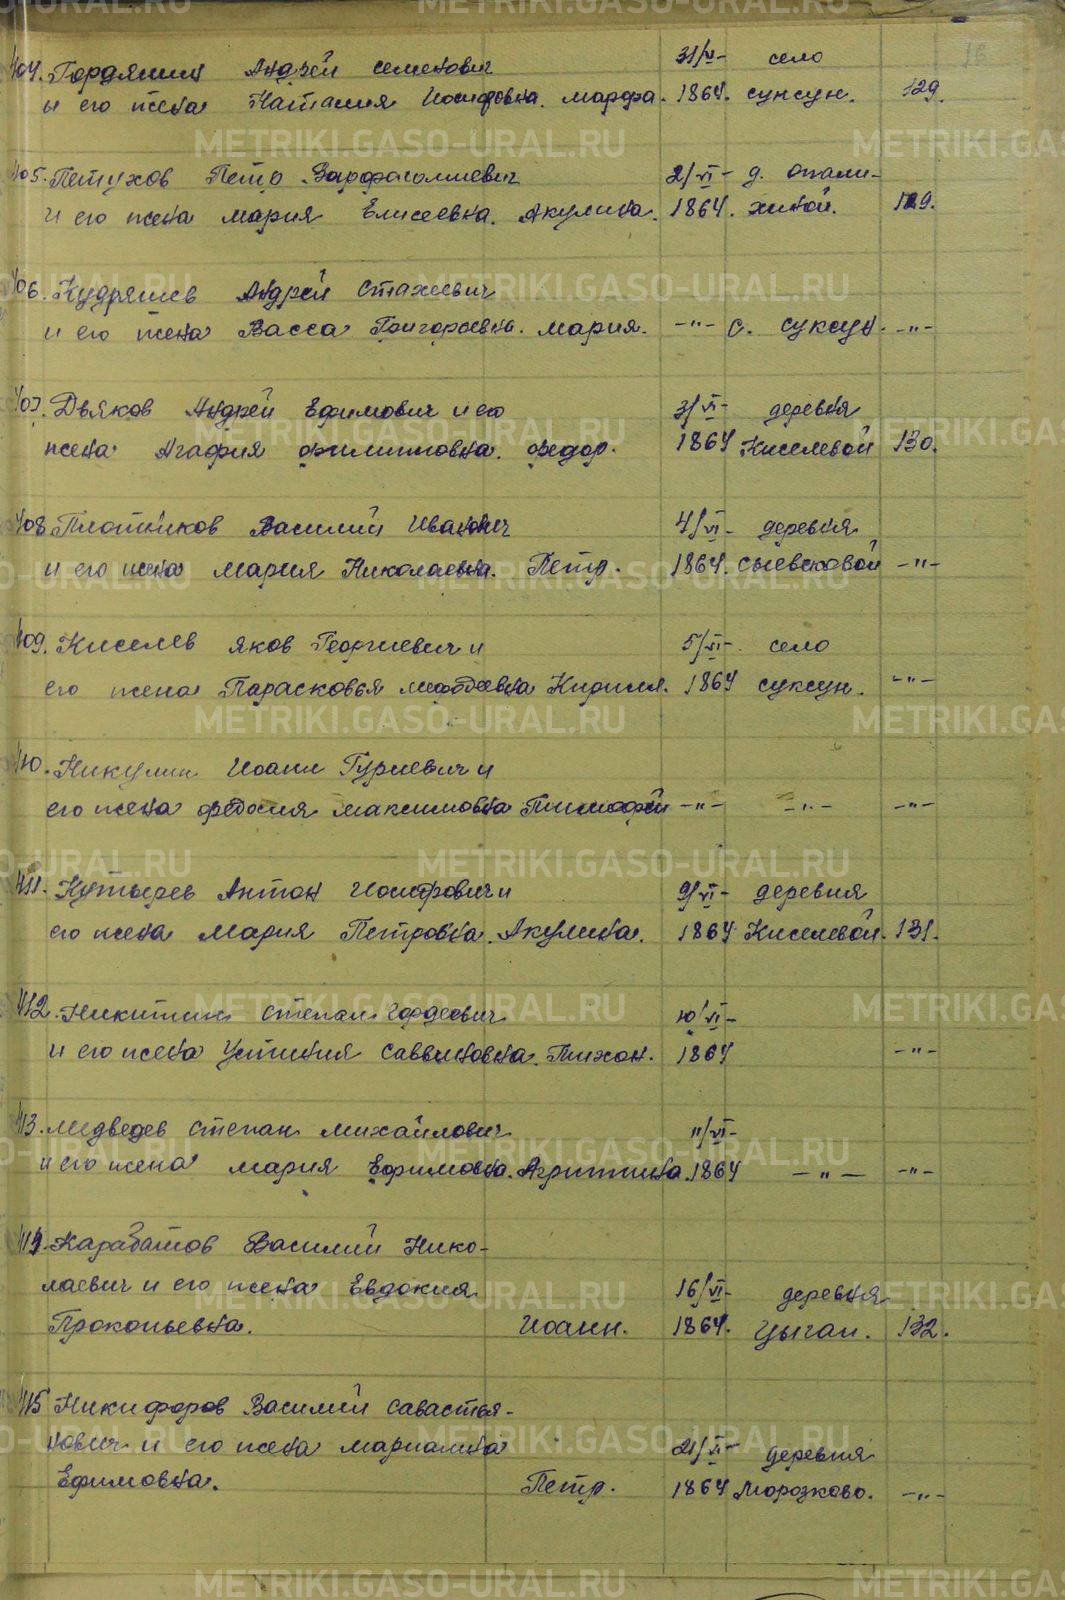 404. Гордянин Андрей Семенович 31/V- село
и его жена Наталия Иосифовна. Марфа. 1864. Суксун. 129.
405. Петухов Петр Варфоломиевич 2/VI- д. Опали-
и его жена Мария Елисеевна. Акулина. 1864. хиной. 129.
406. Кудряшев Андрей Стахиевич
и его жена Васса Григорьевна. Мария. -"- с. Суксун. -"-
407. Дьяков Андрей Ефимович и его 3/VI- деревня
жена Агафия Филипповна. Федор. 1864 Киселевой 130.
408 Плотников Василий Иванович 4/VI- деревня
и его жена Мария Николаевна. Петр. 1864. Сыевсковой -"-
409. Киселев Яков Георгиевич и 5/VI- село
его жена Парасковья Мефодеевна Кирилл. 1864 Суксун. -"-
410. Никулин Иоанн Гуриевич и
его жена Федосия Максимовна Тимофей -"- -"- -"-
411. Кутырев Антон Иосифович и 9/VI- деревня
его жена Мария Петровна. Акулина. 1864 Киселевой. 131.
412. Никитин Степан Гордеевич 10/VI-
и его жена Устиния Саввиновна. Тихон. 1864 -"-
413. Медведев Степан Михайлович 11/VI-
и его жена Мария Ефимовна. Агриппина. 1864 -"- -"-
414. Карабатов Василий Нико-
лаевич и его жена Евдокия 16/VI- деревня
Прокопьевна. Иоанн. 1864. Цыган. 132.
415 Никифоров Василий Савастья-
нович и его жена Мариамна 21/VI- деревня
Ефимовна. Петр. 1864 Морозково. -"-
METRIKI.GASO-URAL.RU